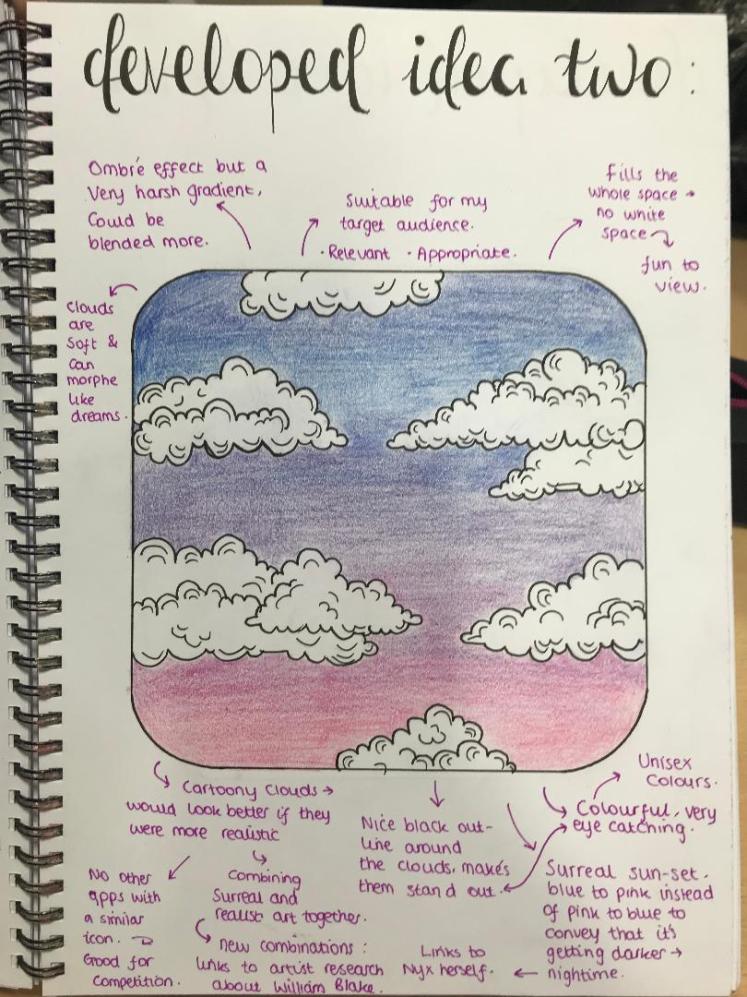 developed idea two:
Ombré effect but a
very harsh gradient,
Could be
blended more.
Suitable for my
target audience.
· Relevant · Appropriate.
Fills the
whole space →
no white
space
fun to
view.
Clouds
are
Soft &
can
morphe
like
dreams.
Cartoony clouds →
would look better if they
were more realistic
No other
apps with
a similar
icon.
Good for
Competition.
Combining
Surreal and
realist art together.
new combinations:
links to artist research
about William Blake.
Nice black out-
line around
the clouds, makes
them stand out.
Links to
Nyx herself.
Unisex
Colours.
Colourful, very
eye catching.
Surreal sun-set.
blue to pink instead
of pink to blue to
convey that it's
getting darker →
nighttime.